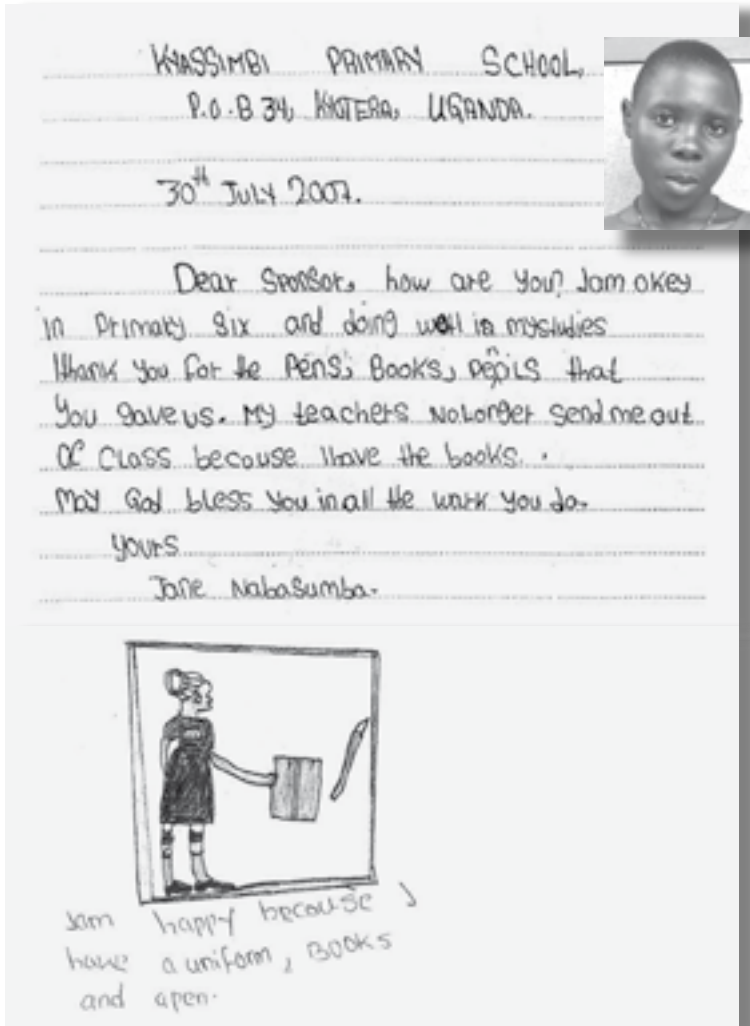 KYASSIMBI PRIMARY SCHOOL,
P.O.B 34, KYOTERA, UGANDA.
30th JULY 2007.
Dear Sponsor, how are you? Iam okey
in Primary Six and doing well in mystudies
Ithank you for the Pens, Books, Pencils that
you gave us. My teachers no longer send me out
of class becouse Ihave the books.
May God bless you in all the work you do.
yours
Jane Nabasumba.
Iam happy becouse I
have a uniform, Books
and apen.